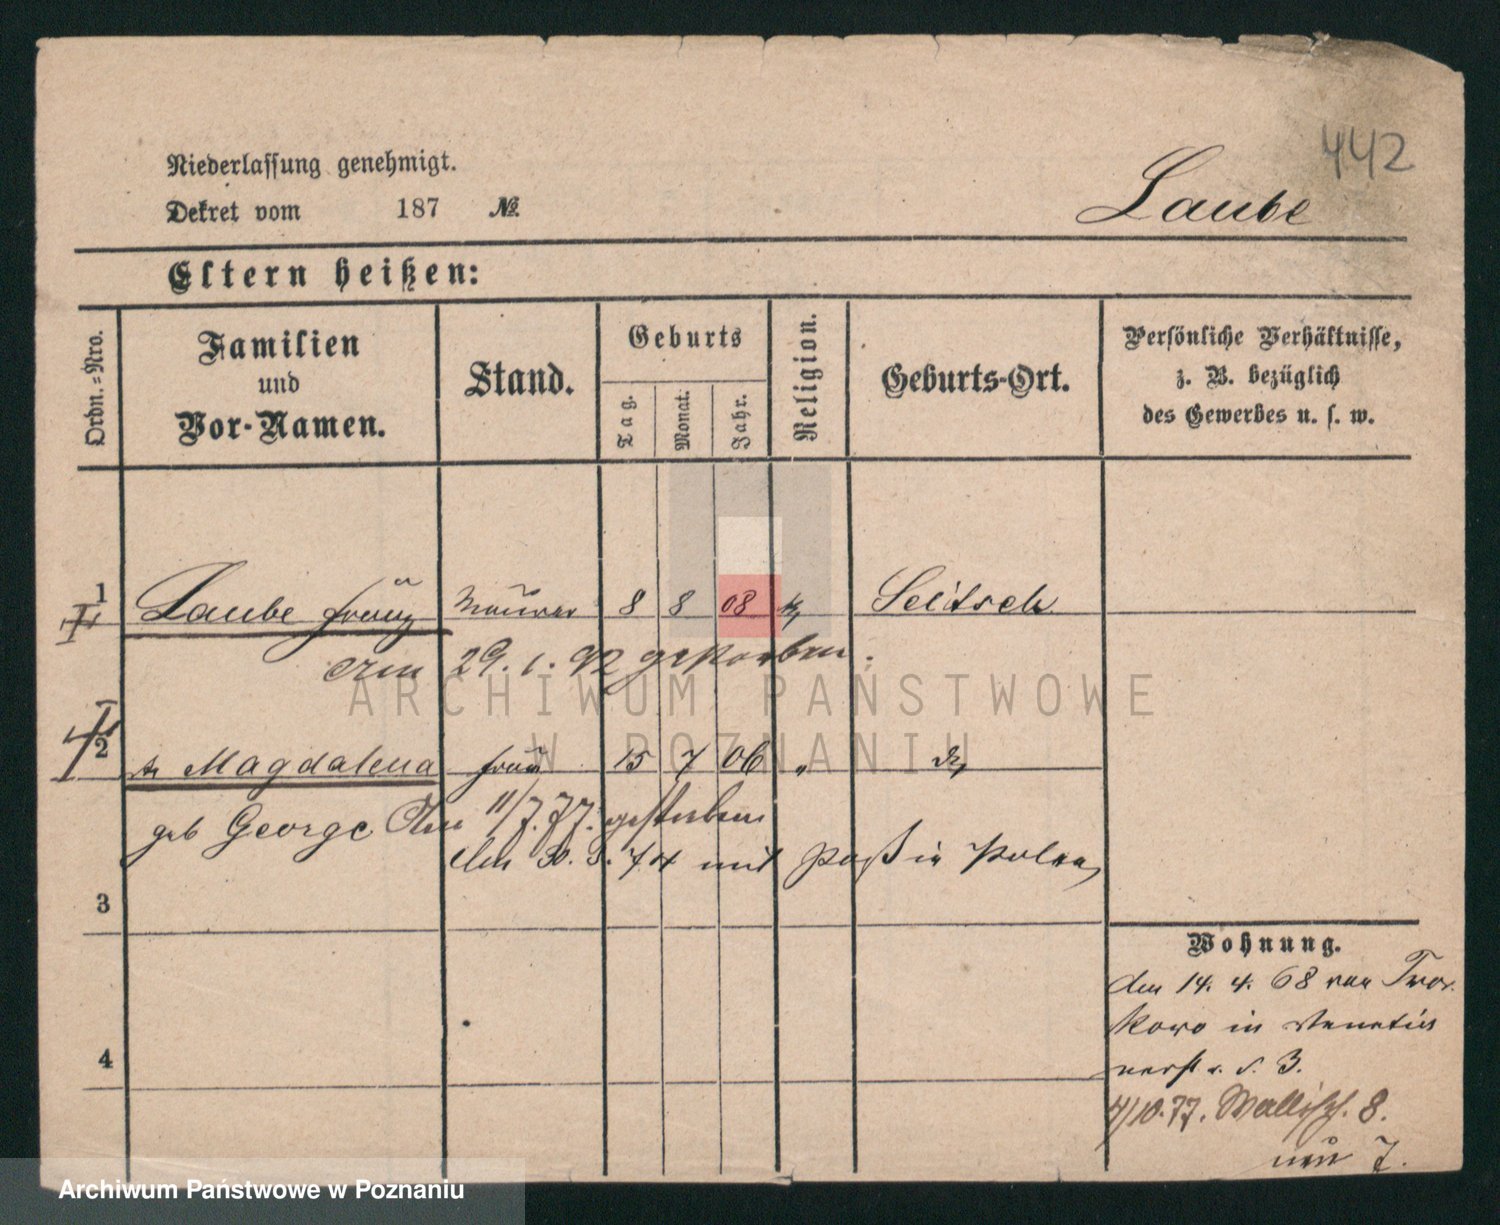 442
Niederlassung genehmigt.
Dekret vom 187 №.
Laube
Eltern heißen:
Ordn.=Nro.
Familien und Vor-Namen.
Stand.
Geburts
Tag.
Monat.
Jahr.
Religion.
Geburts-Ort.
Persönliche Verhältnisse,
z. B. bezüglich
des Gewerbes u. s. w.
1 Laube Franz Maurer 8 8 08 k Seitsch
I
Am 29. 1. 92 gestorben.
2 Magdalena Frau 15 7 06 " do
geb George Am 11/7. 77. gestorben
den 30. 3. 74 mit Paß in Polen
3
4
Wohnung.
den 14. 4. 68 von Twor-
kowo in Venetia
nerstr. 3.
4/10. 77. Wallisch. 8.
neu 7.
ARCHIWUM PAŃSTWOWE
W POZNANIU
Archiwum Państwowe w Poznaniu